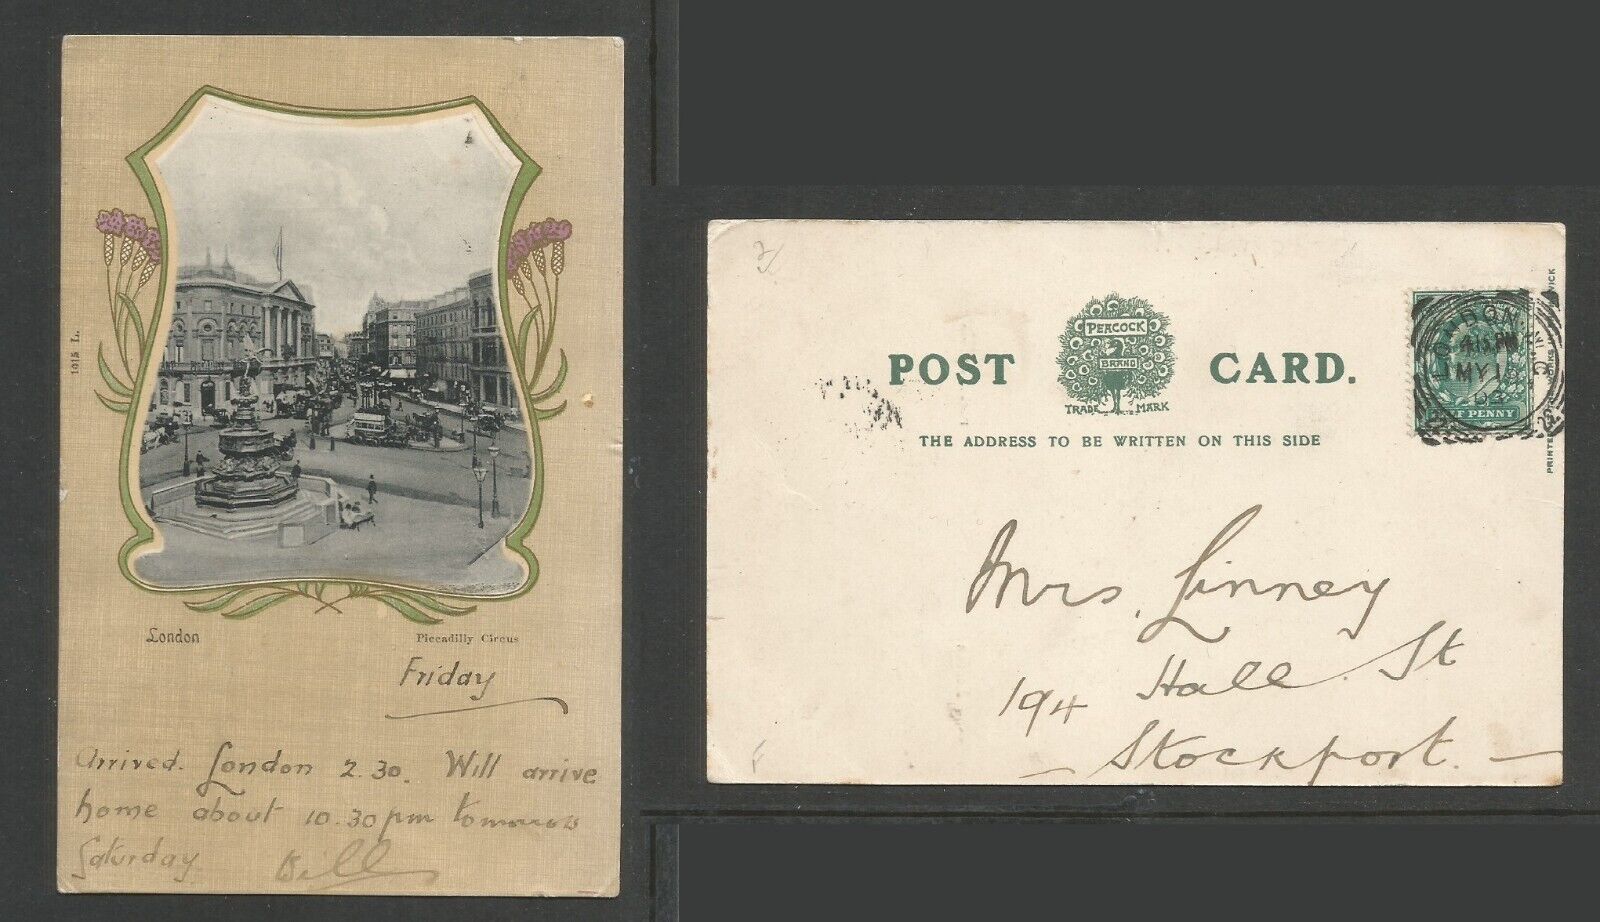 1015 L.
London
Piccadilly Circus
Friday
Arrived. London 2.30. Will arrive
home about 10.30 pm tomorrow
Saturday. Bill
POST CARD.
PEACOCK
BRAND
TRADE MARK
THE ADDRESS TO BE WRITTEN ON THIS SIDE
LONDON. W.C
MY 1
HALF PENNY
PRINTED
Mrs. Linney
194 Hall. St
Stockport.